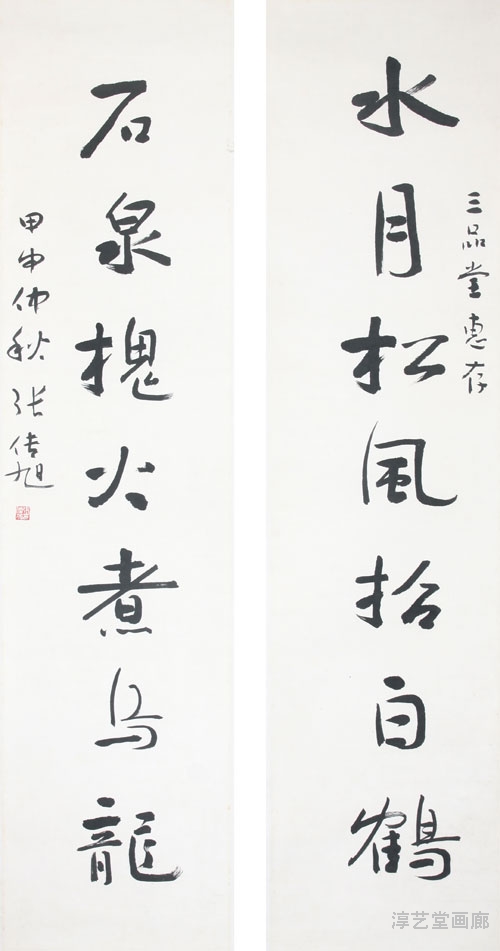 三品堂惠存
水月松風拾白鶴
石泉槐火煮烏龍
甲申仲秋 张传旭
淳艺堂画廊